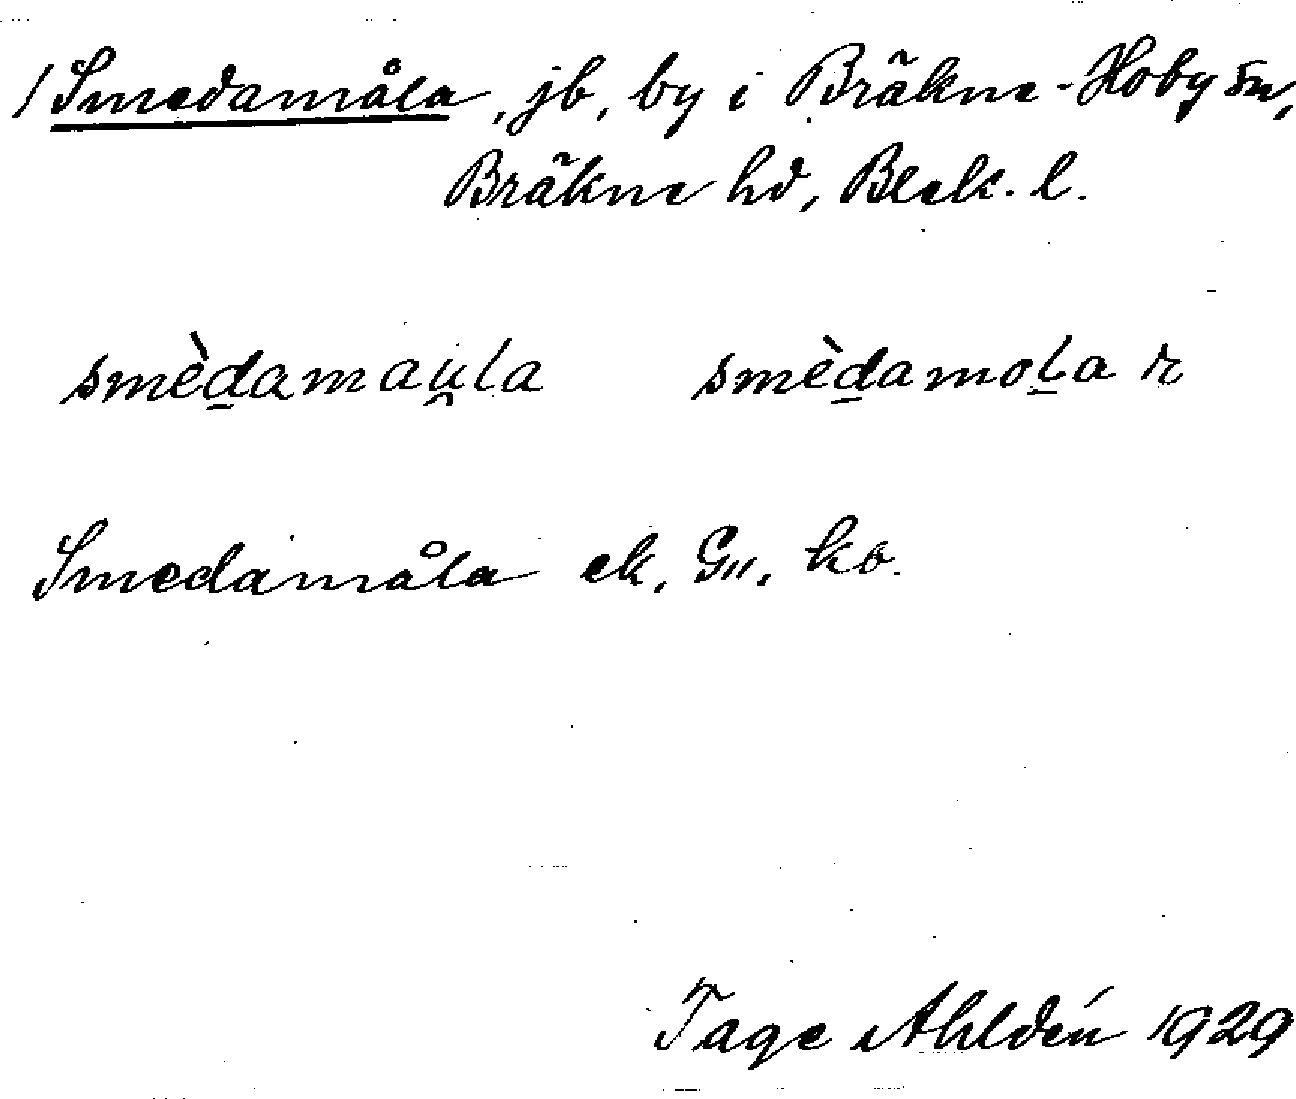 / Smedamåla, jb, by i Bräkne-Hoby sn,
Bräkne hd, Blek. l.
smè̱damau̯la smè̱damoḻa r
Smedamåla ek, G.., ko.
Tage Ahldén 1929